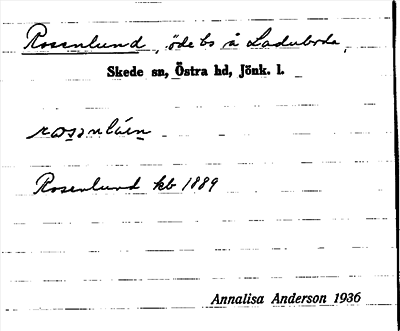 Rosenlund, öde bs å Laduboda,
Skede sn, Östra hd, Jönk. l.
Rosenlund kb 1889
Annalisa Anderson 1936